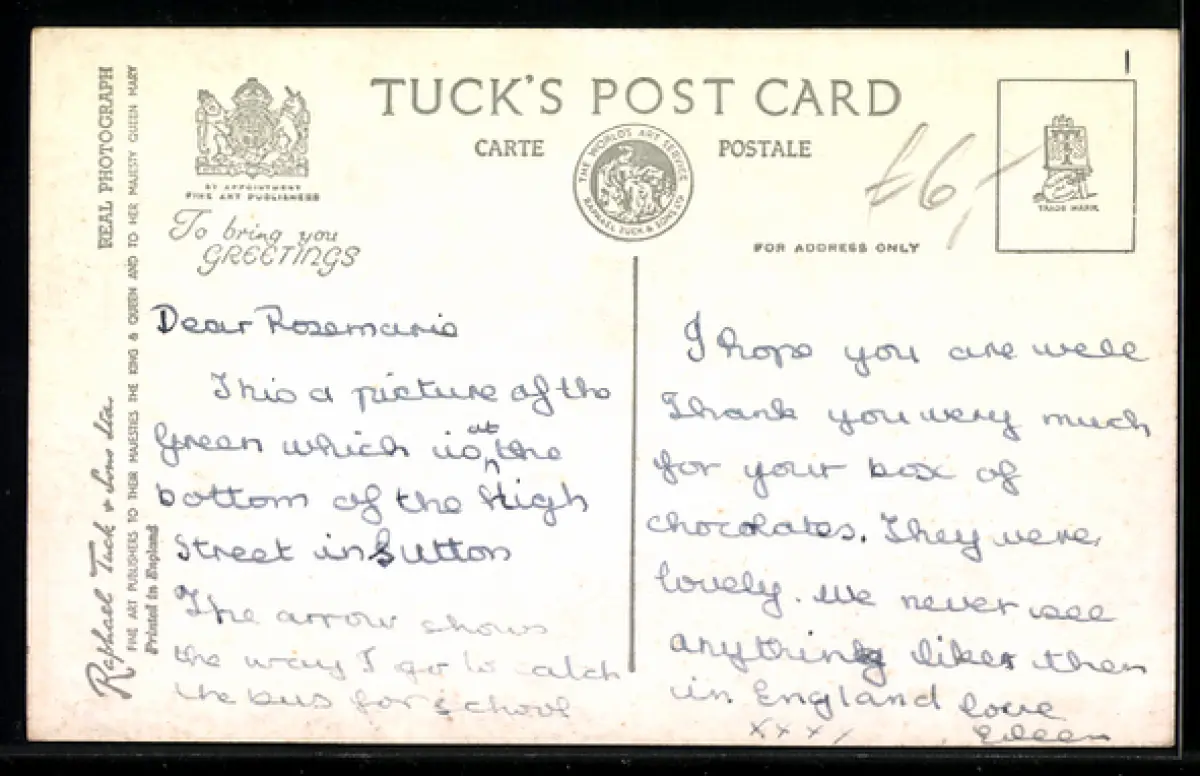 TUCK'S POST CARD
CARTE POSTALE
THE WORLD'S ART SERVICE
RAPHAEL TUCK & SONS LTD
BY APPOINTMENT
FINE ART PUBLISHERS
To bring you
GREETINGS
£6,-
1
TRADE MARK
FOR ADDRESS ONLY
REAL PHOTOGRAPH
Raphael Tuck & Sons Ltd.
FINE ART PUBLISHERS TO THEIR MAJESTIES THE KING & QUEEN AND TO HER MAJESTY QUEEN MARY
Printed in England
Dear Rosemarie
This a picture of the
Green which is at the
bottom of the High
Street in Sutton
The arrow shows
the way I go to catch
the bus for school
I hope you are well
Thank you very much
for your box of
chocolates. They were
lovely. We never see
anything like them
in England love
xxxx Eileen